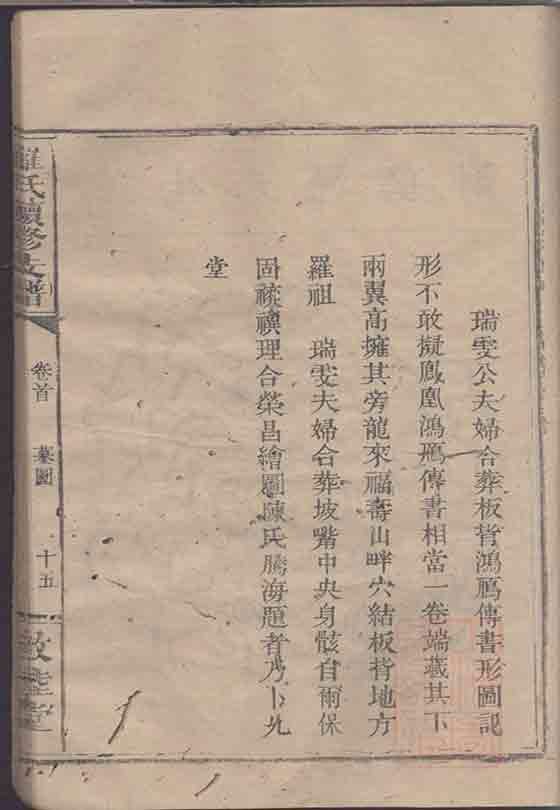 瑞雯公夫婦合葬板背鴻鴈傳書形圖記
形不敢擬鳳凰鴻鴈傳書相當一卷端藏其下
兩翼高擁其旁龍來福壽山畔穴結板背地方
羅祖　瑞雯夫婦合葬坡嘴中央身骸自爾保
固裱禩理合榮昌繪圖陳氏騰海題者乃卜九
堂
羅氏續修支譜
卷首　墓圖　十五
敦睦堂